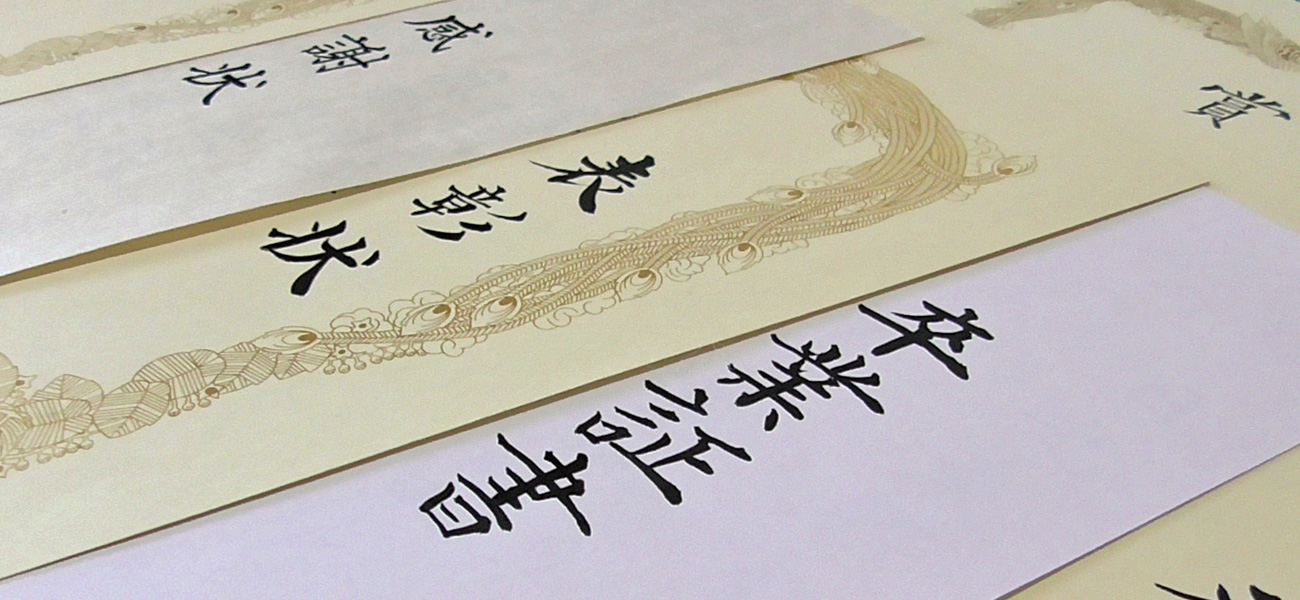 感謝状
表彰状
卒業証書
賞